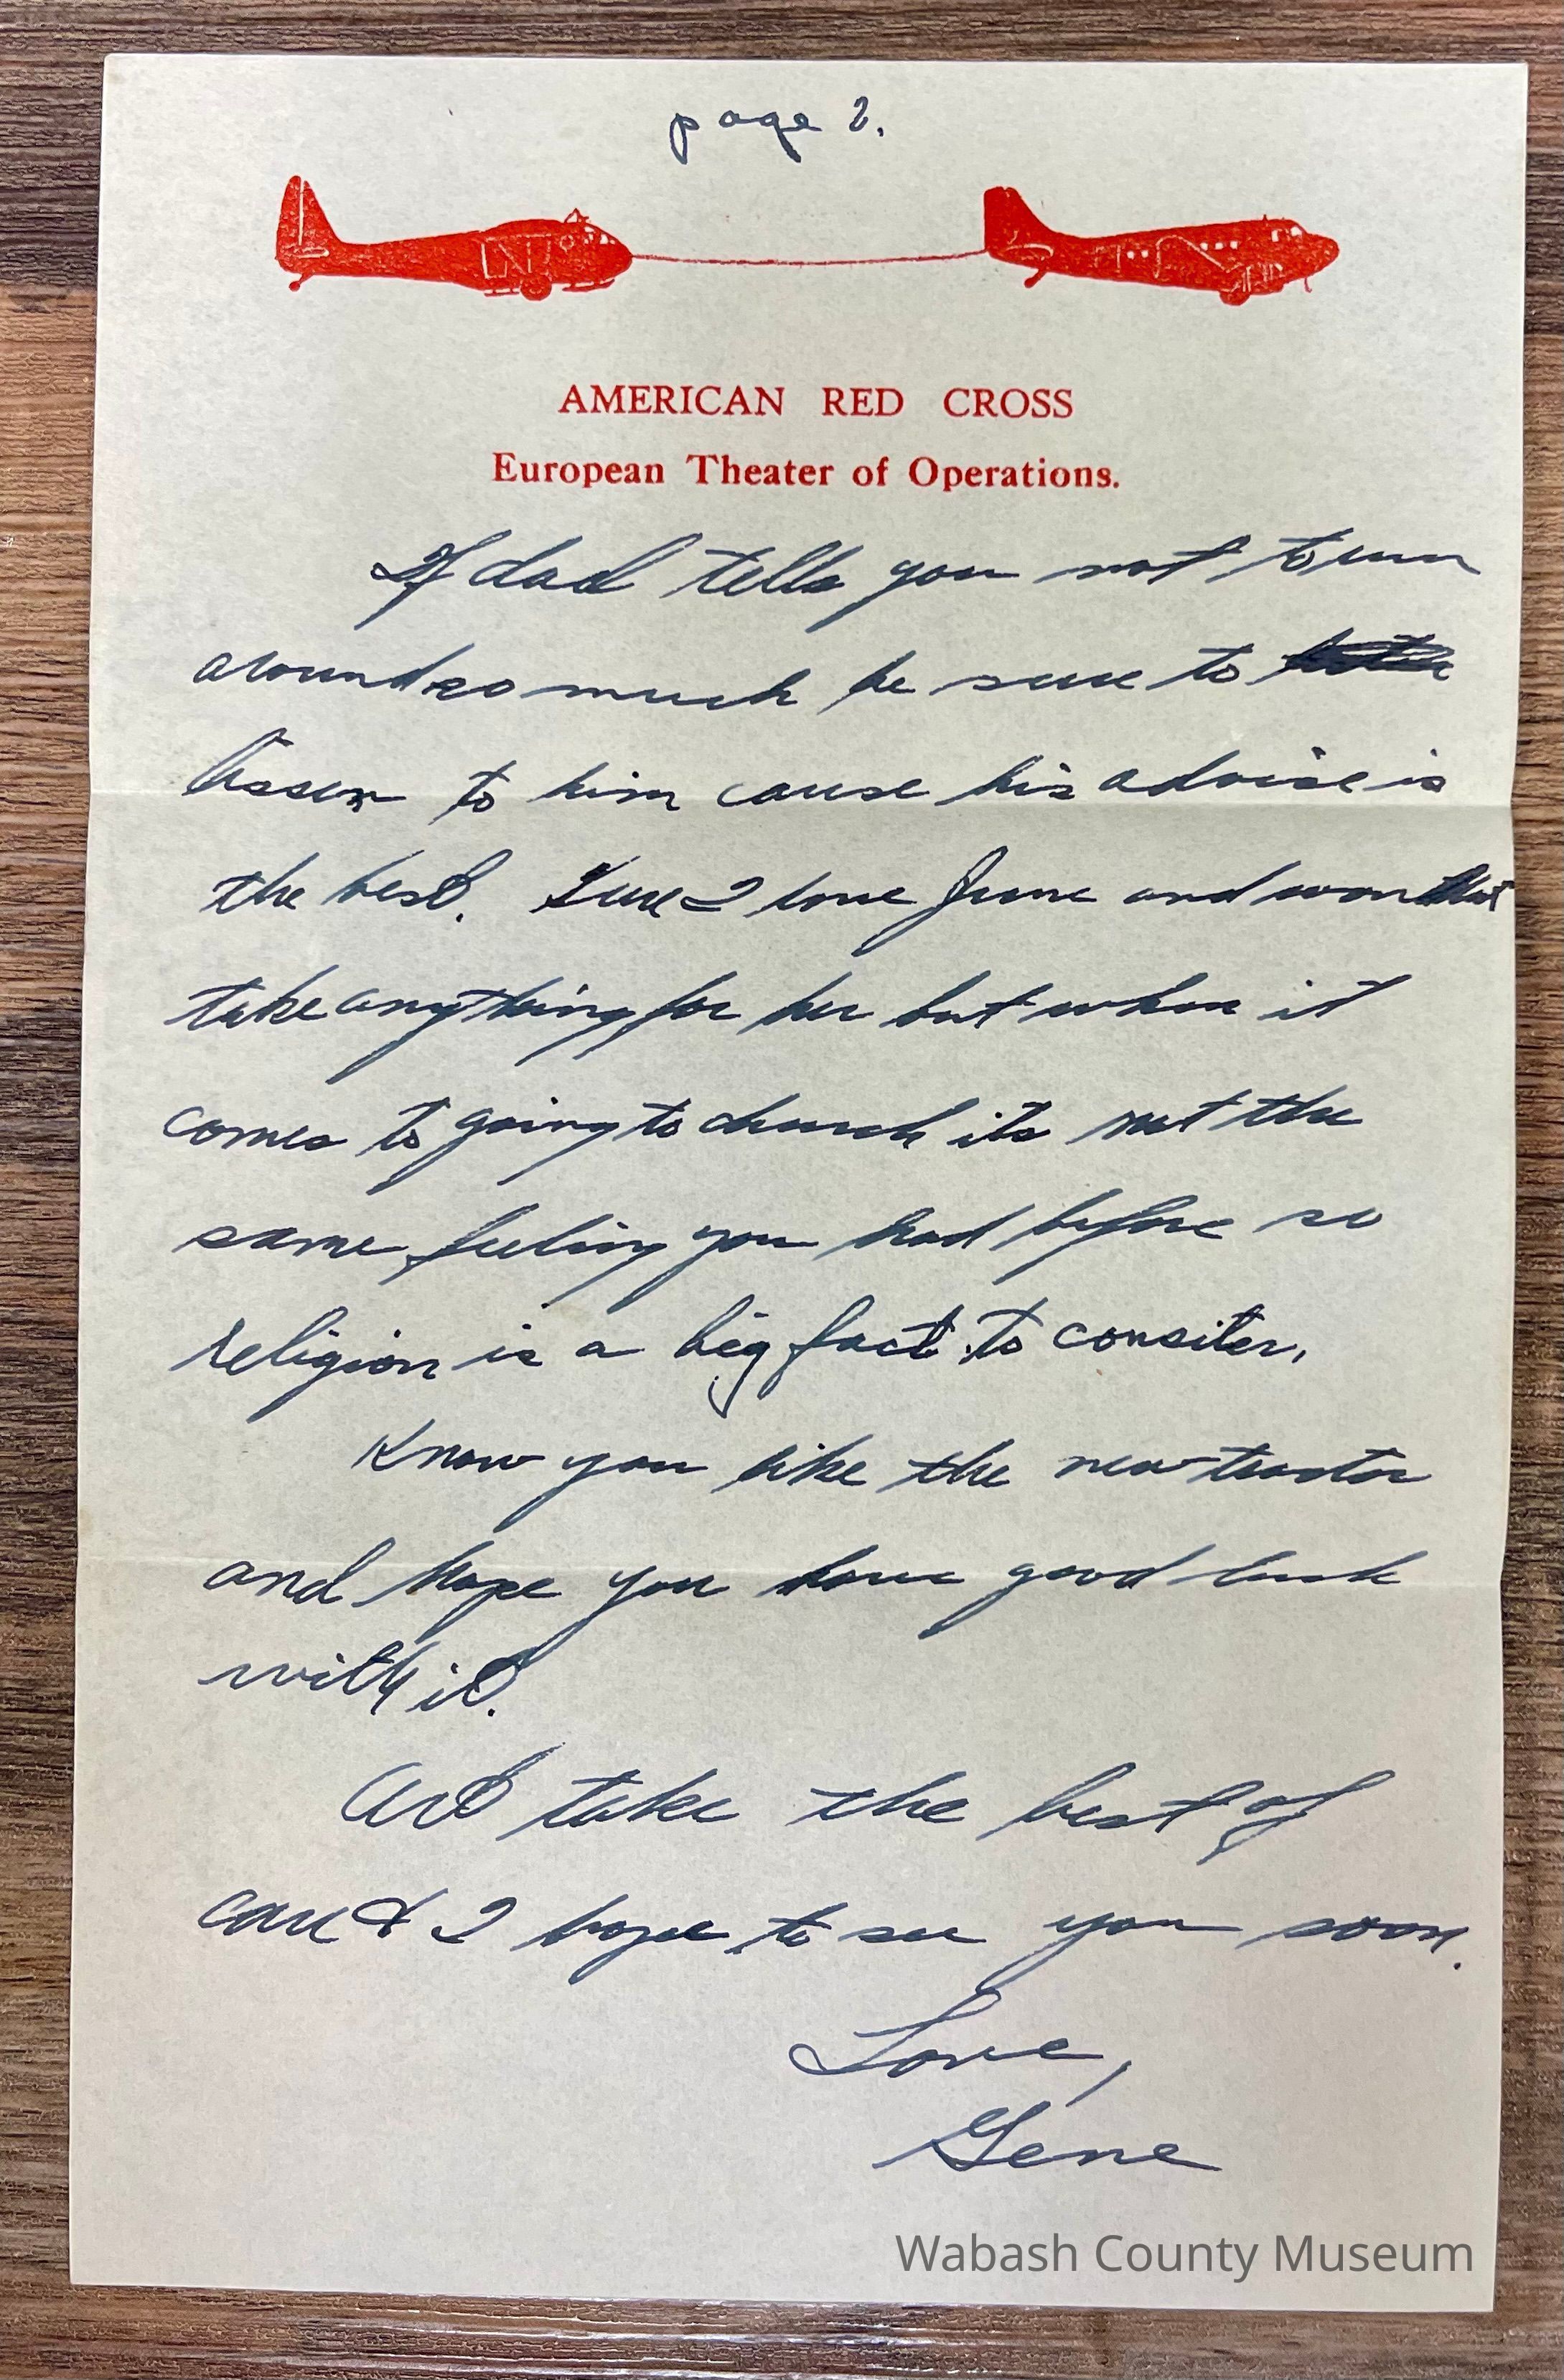 page 2.
AMERICAN RED CROSS
European Theater of Operations.
If dad tells you not to run
around so much be sure to
lissen to him cause his advise is
the best. Sure I love June and
take anything for her but when it
comes to going to church its not the
same feeling you had before so
religion is a big fact to consiter.
Know you like the new tractor
and hope you have good luck
with it.
And take the best of
care & I hope to see you soon.
Love,
Gene
Wabash County Museum